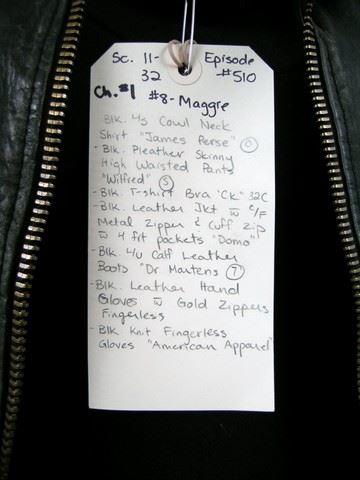 Sc. 11-32 Episode #510
Ch.#1 #8-Maggie
Blk. l/s Cowl Neck
Shirt "James Perse" 0
- Blk. Pleather Skinny
High Waisted Pants
"Wilfred" S
- Blk. T-Shirt Bra "CK" 32C
- Blk. Leather Jkt w̄ c/F
Metal Zipper & Cuff Zip
w̄ 4 frt pockets "Domo"
- Blk. 4u Calf Leather
Boots "Dr Martens" 7
- Blk. Leather Hand
Gloves w̄ Gold Zippers
Fingerless
- Blk Knit Fingerless
Gloves "American Apparel"